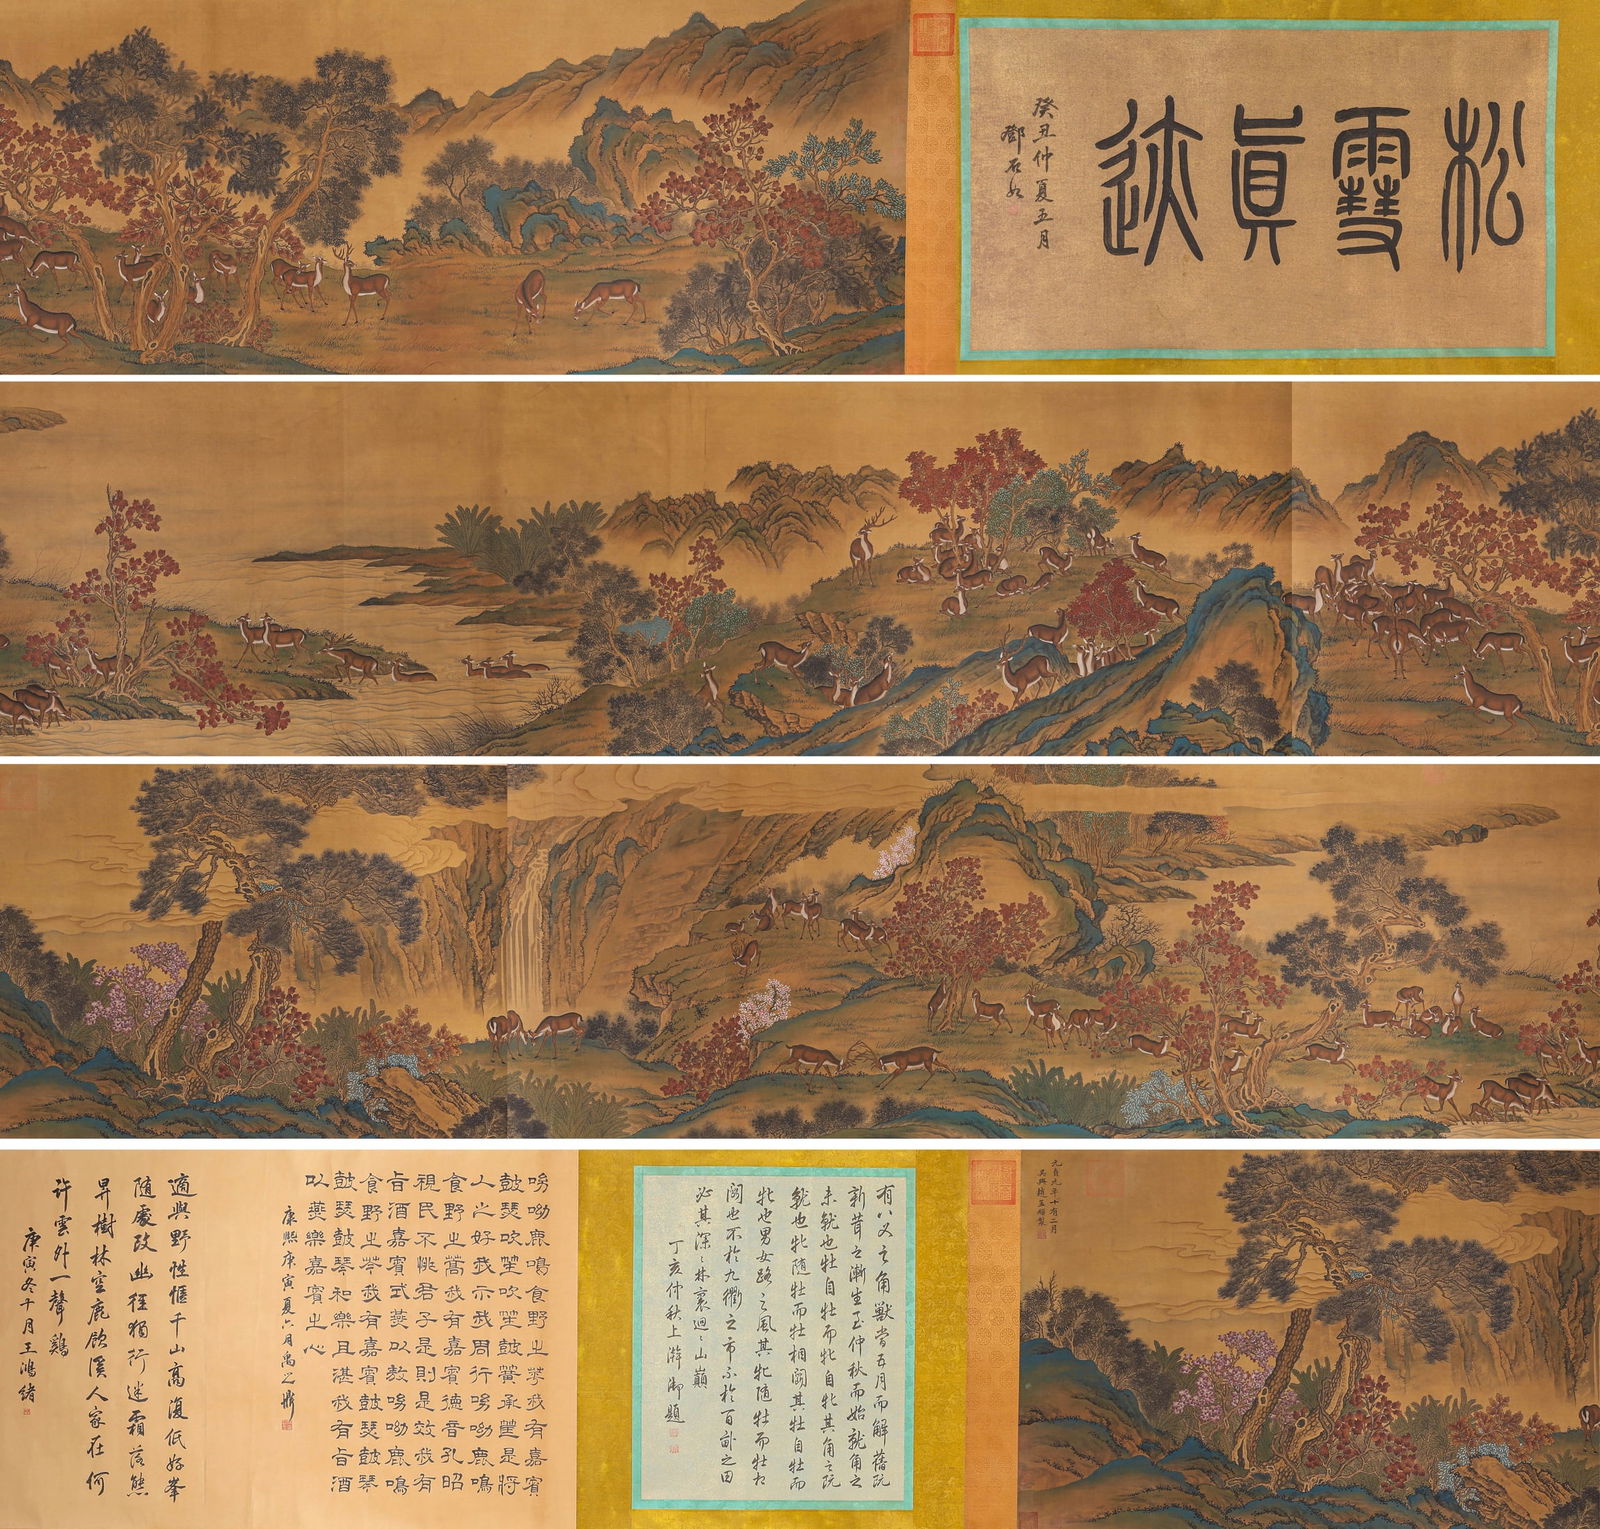 松雪眞迹
癸丑仲夏五月
鄧石如
元貞元年十有二月
吳興趙孟頫製
有八叉之角獸當五月而解舊阮
新茸之漸生至仲秋而始就角之
未就也牡自牡而牝自牝其角之阮
就也牝隨牡而牡相鬭其牡自牡而
牝也男女路之風其牝隨牡而牡相
鬭也不於九衢之市不於百畝之田
必其深深林裏迴迴山巔
丁亥仲秋上澣御題
呦呦鹿鳴食野之苹我有嘉賓
鼓瑟吹笙吹笙鼓簧承筐是將
人之好我示我周行呦呦鹿鳴
食野之蒿我有嘉賓德音孔昭
視民不恌君子是則是效我有
旨酒嘉賓式燕以敖呦呦鹿鳴
食野之芩我有嘉賓鼓瑟鼓琴
鼓瑟鼓琴和樂且湛我有旨酒
以燕樂嘉賓之心
康熙庚寅夏六月禹之鼎
適與野性愜千山高復低好峯
隨處改幽徑獨行迷霜落熊
昇樹林空鹿飲溪人家在何
許雲外一聲鷄
庚寅冬十月王鴻緒